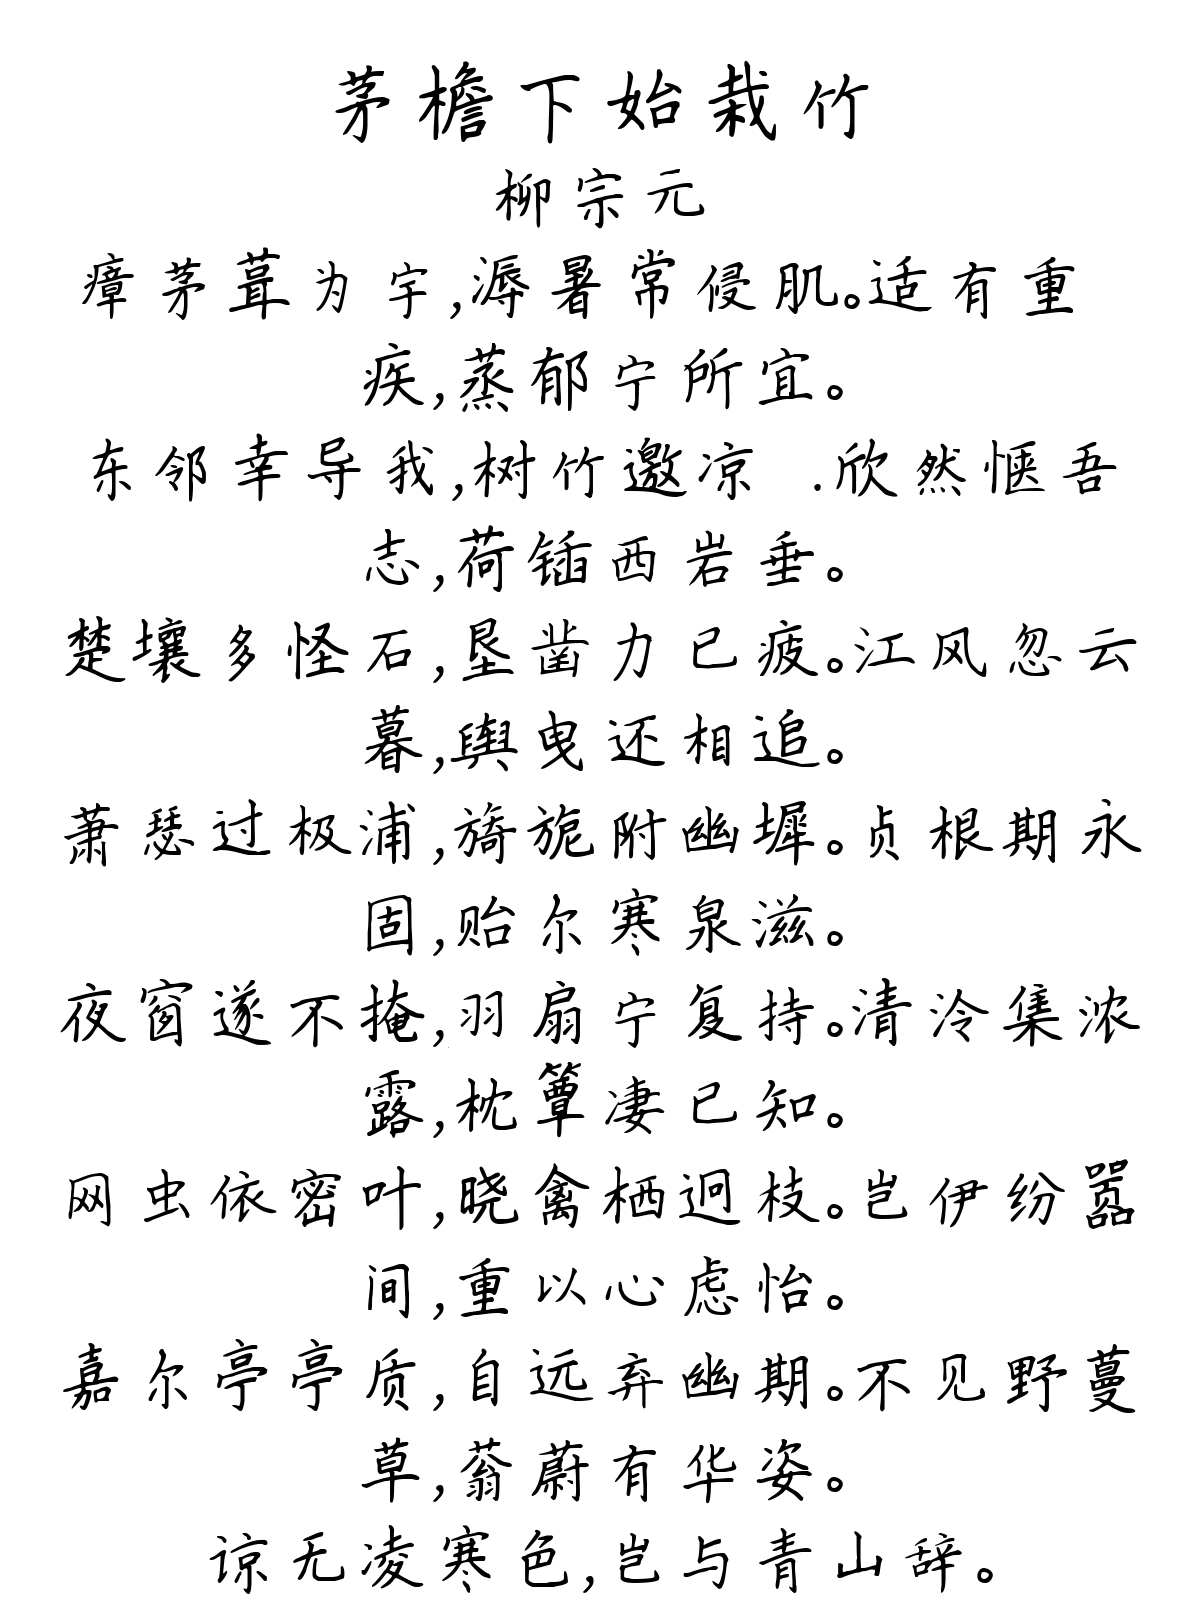 茅檐下始栽竹
柳宗元
瘴茅葺为宇,溽暑常侵肌。适有重
疾,蒸郁宁所宜。
东邻幸导我,树竹邀凉 .欣然惬吾
志,荷锸西岩垂。
楚壤多怪石,垦凿力已疲。江风忽云
暮,舆曳还相追。
萧瑟过极浦,旖旎附幽墀。贞根期永
固,贻尔寒泉滋。
夜窗遂不掩,羽扇宁复持。清泠集浓
露,枕簟凄已知。
网虫依密叶,晓禽栖迥枝。岂伊纷嚣
间,重以心虑怡。
嘉尔亭亭质,自远弃幽期。不见野蔓
草,蓊蔚有华姿。
谅无凌寒色,岂与青山辞。